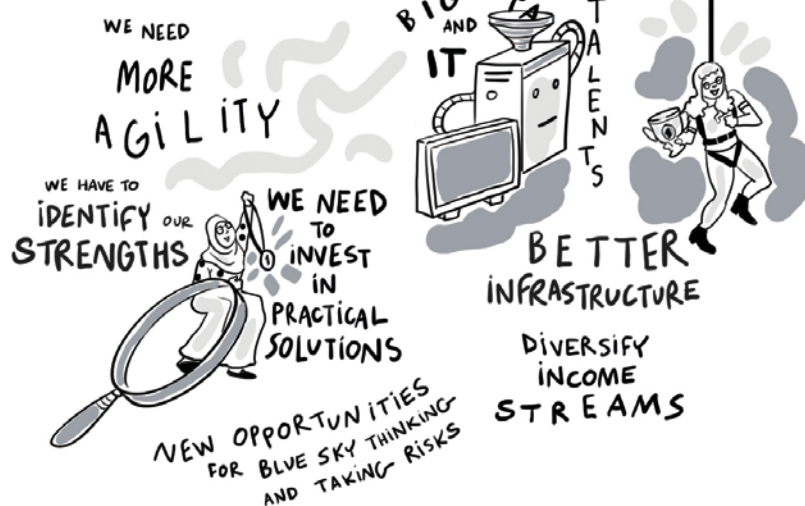 WE NEED
MORE
AGiLiTY
WE HAVE TO
iDENTiFY OUR
STRENGTHS
WE NEED
TO
iNVEST
iN
PRACTiCAL
SOLUTiONS
NEW OPPORTUNiTiES
FOR BLUE SKY THiNKiNG
AND TAKiNG RiSKS
AND
IT
TALENTS
BETTER
iNFRASTRUCTURE
DiVERSiFY
iNCOME
STREAMS